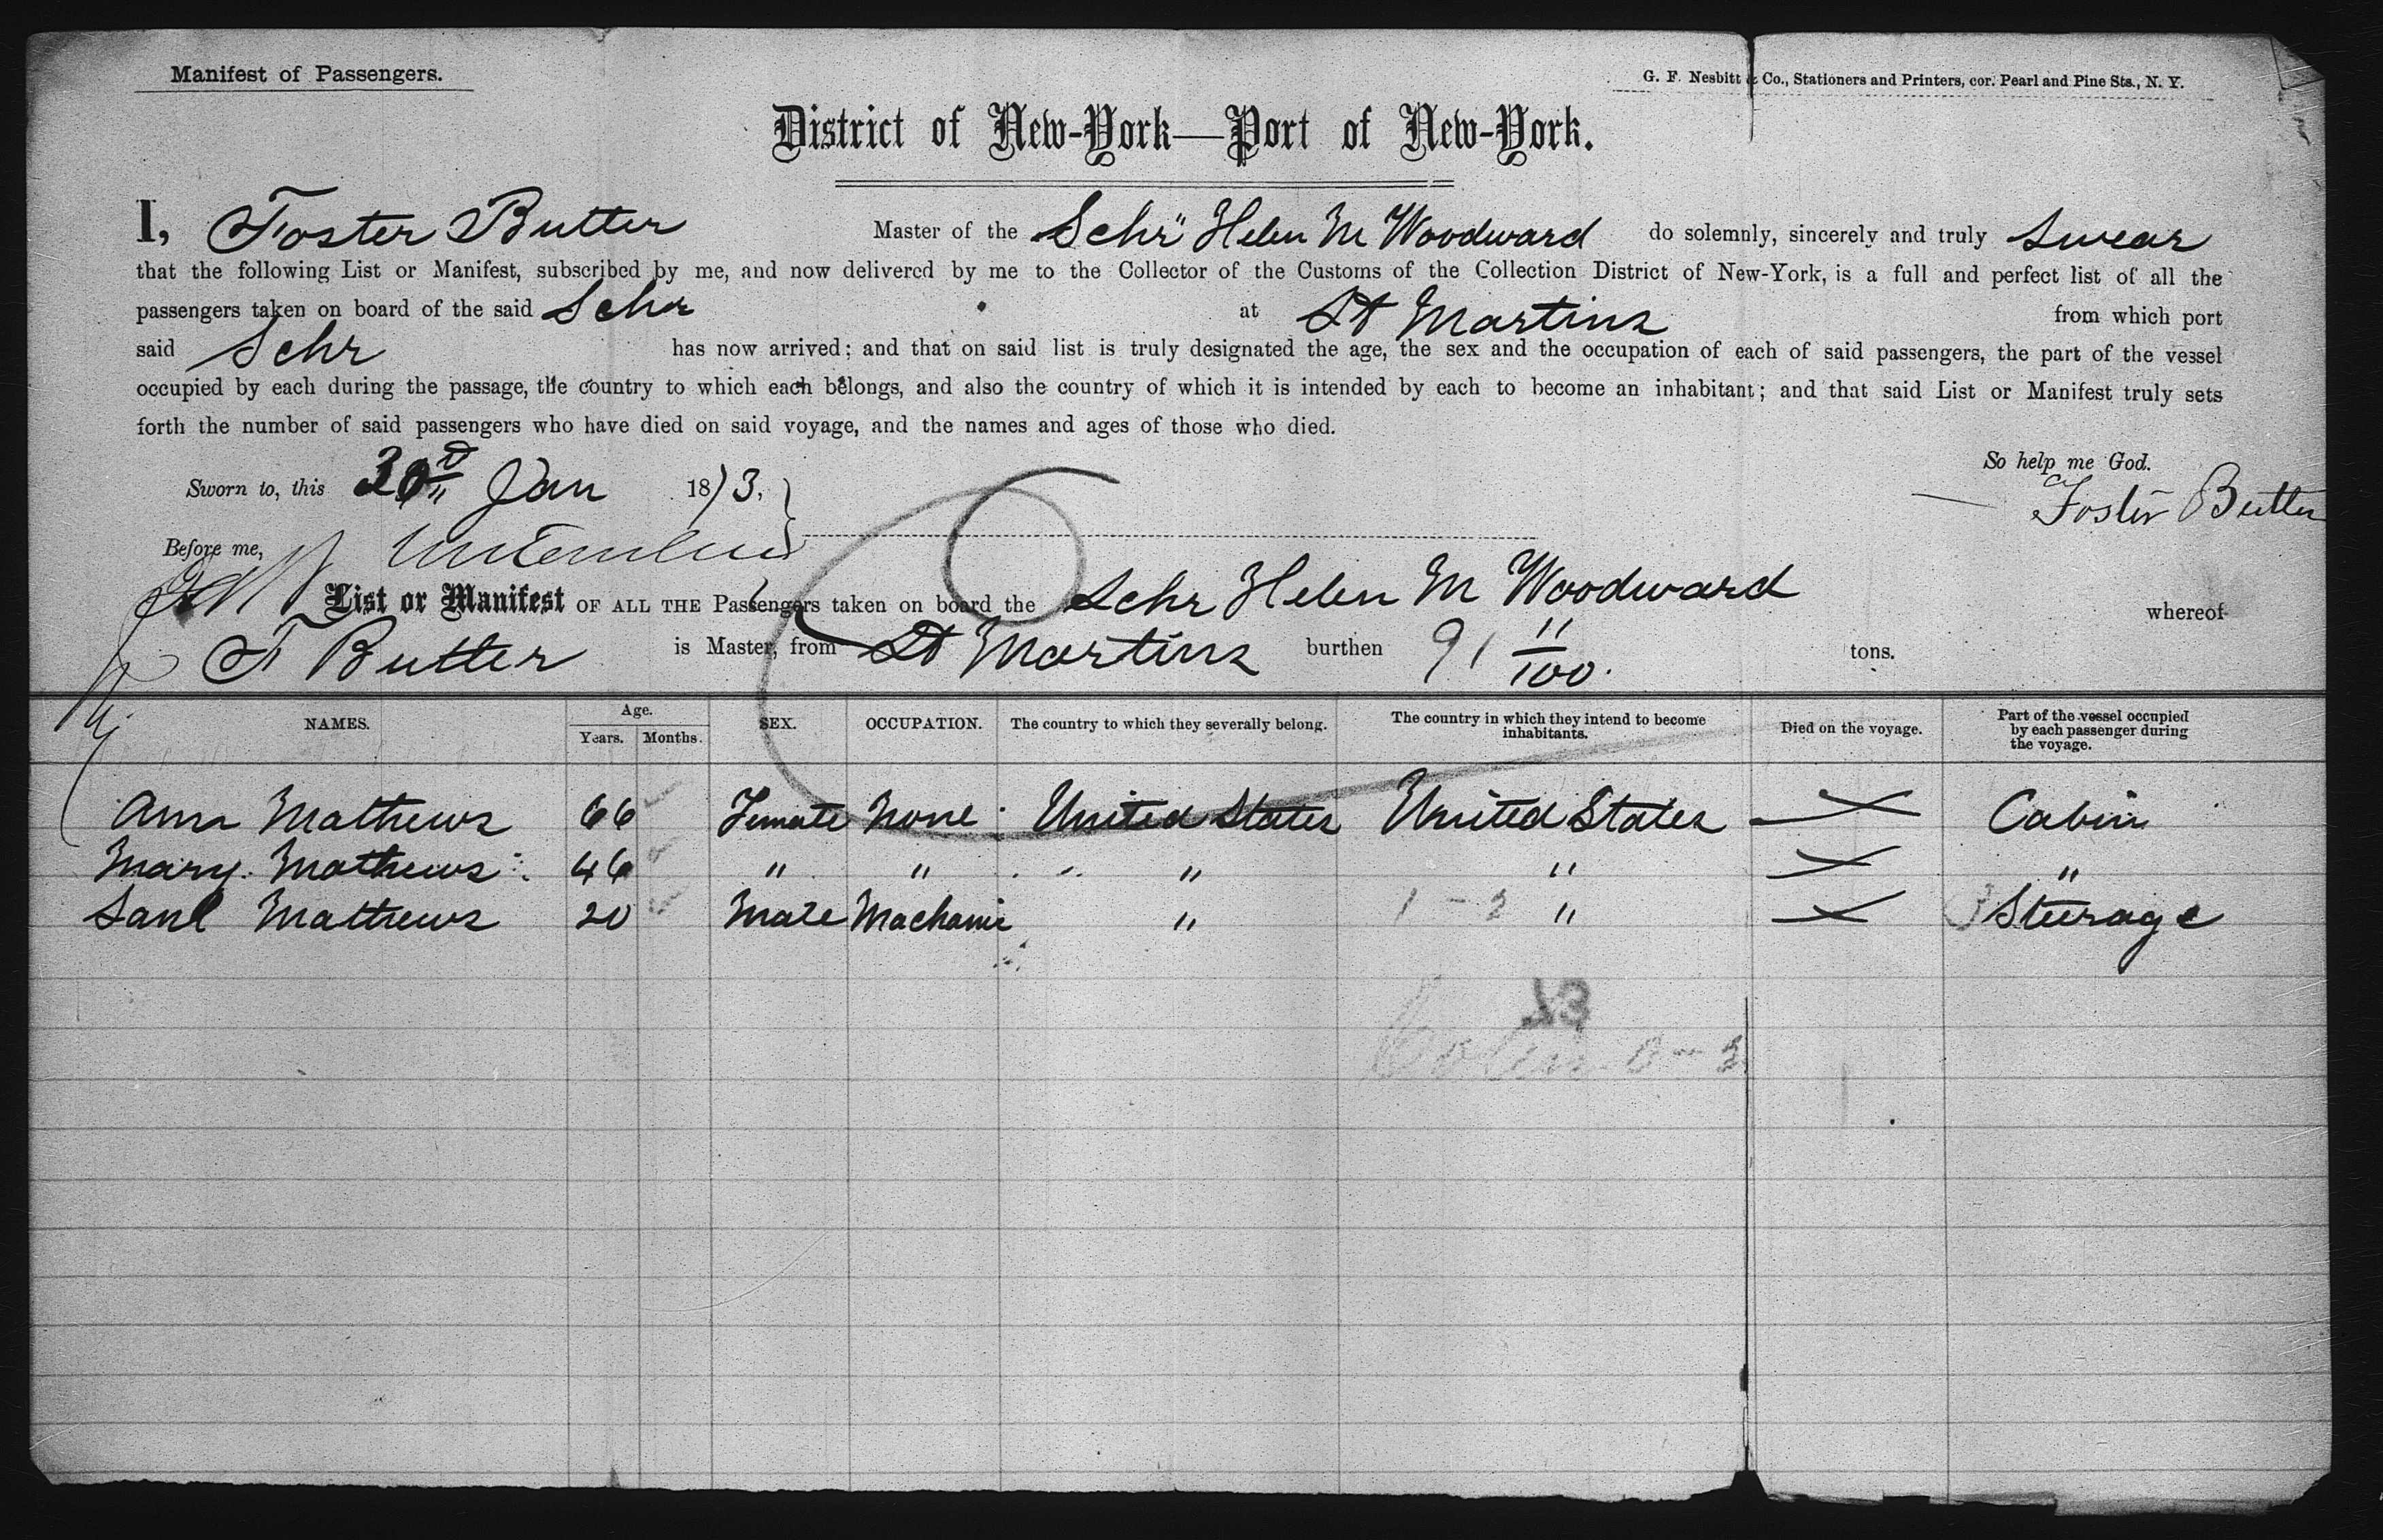 Manifest of Passengers.
G. F. Nesbitt & Co., Stationers and Printers, cor. Pearl and Pine Sts., N. Y.
District of New-York—Port of New-York.
I, Foster Butter Master of the Schr Helen M Woodward do solemnly, sincerely and truly swear
that the following List or Manifest, subscribed by me, and now delivered by me to the Collector of the Customs of the Collection District of New-York, is a full and perfect list of all the
passengers taken on board of the said Schr at St Martins from which port
said Schr has now arrived; and that on said list is truly designated the age, the sex and the occupation of each of said passengers, the part of the vessel
occupied by each during the passage, the country to which each belongs, and also the country of which it is intended by each to become an inhabitant; and that said List or Manifest truly sets
forth the number of said passengers who have died on said voyage, and the names and ages of those who died.
So help me God.
Sworn to, this Jan 1873.
Foster Butter
Before me,
List or Manifest OF ALL THE Passengers taken on board the Schr Helen M Woodward whereof
F Butter is Master, from St Martins burthen 91 11/100. tons.
NAMES. Age. Years. Months. SEX. OCCUPATION. The country to which they severally belong. The country in which they intend to become inhabitants. Died on the voyage. Part of the vessel occupied by each passenger during the voyage.
Ann Mathews 66 Female None United States United States Cabin
Mary Mathews 46 " " " " "
Saml Mathews 20 Male Machanic " " Steerage
1 - 2
13